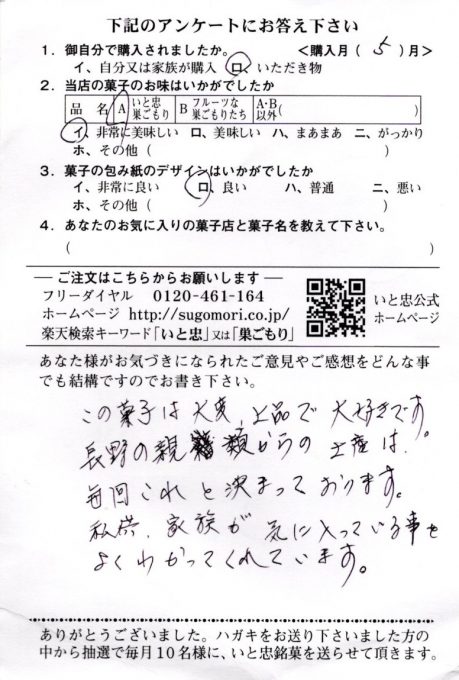 下記のアンケートにお答え下さい
1．御自分で購入されましたか。 ＜購入月（ 5 ）月＞
イ、自分又は家族が購入 ロ、いただき物
2．当店の菓子のお味はいかがでしたか
品 名 A いと忠巣ごもり B フルーツな巣ごもりたち A・B以外（ ）
イ、非常に美味しい ロ、美味しい ハ、まあまあ ニ、がっかり
ホ、その他（ ）
3．菓子の包み紙のデザインはいかがでしたか
イ、非常に良い ロ、良い ハ、普通 ニ、悪い
ホ、その他（ ）
4．あなたのお気に入りの菓子店と菓子名を教えて下さい。
（ ）
― ご注文はこちらからお願いします ―
フリーダイヤル 0120-461-164
ホームページ http://sugomori.co.jp/
楽天検索キーワード「いと忠」又は「巣ごもり」
いと忠公式
ホームページ
あなた様がお気づきになられたご意見やご感想をどんな事
でも結構ですのでお書き下さい。
この菓子は大変、上品で大好きです。
長野の親類からの土産は、
毎回これと決まっております。
私供、家族が気に入っている事を
よくわかってくれています。
ありがとうございました。ハガキをお送り下さいました方の
中から抽選で毎月10名様に、いと忠銘菓を送らせて頂きます。